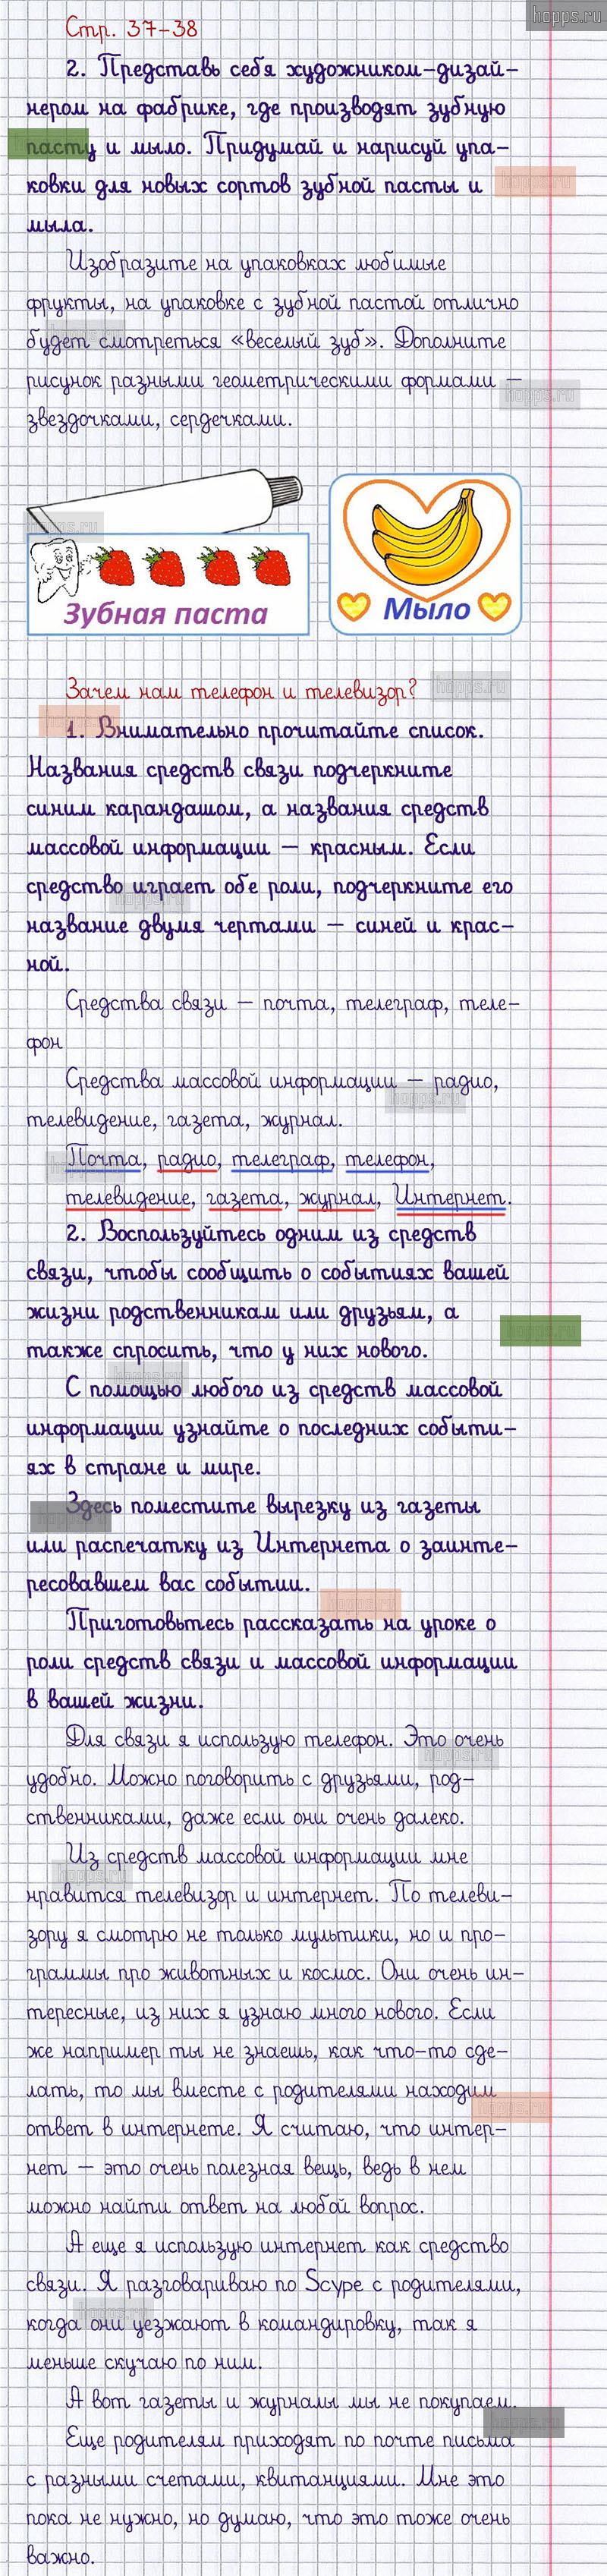 hopps.ru
Стр. 37-38
2. Представь себя художником-дизай-
нером на фабрике, где производят зубную
пасту и мыло. Придумай и нарисуй упа-
ковки для новых сортов зубной пасты и
hopps.ru
мыла.
Изобразите на упаковках любимые
фрукты, на упаковке с зубной пастой отлично
будет смотреться «веселый зуб». Дополните
рисунок разными геометрическими формами —
hopps.ru
звездочками, сердечками.
hopps.ru
Зубная паста
Мыло
Зачем нам телефон и телевизор?
hopps.ru
1. Внимательно прочитайте список.
Названия средств связи подчеркните
синим карандашом, а названия средств
массовой информации — красным. Если
средство играет обе роли, подчеркните его
hopps.ru
название двумя чертами — синей и крас-
ной.
Средства связи — почта, телеграф, теле-
фон
Средства массовой информации — радио,
hopps.ru
телевидение, газета, журнал.
Почта, радио, телеграф, телефон,
телевидение, газета, журнал, Интернет.
2. Воспользуйтесь одним из средств
связи, чтобы сообщить о событиях вашей
жизни родственникам или друзьям, а
hopps.ru
также спросить, что у них нового.
С помощью любого из средств массовой
информации узнайте о последних событи-
ях в стране и мире.
Здесь поместите вырезку из газеты
или распечатку из Интернета о заинте-
ресовавшем вас событии.
hopps.ru
Приготовьтесь рассказать на уроке о
роли средств связи и массовой информации
в вашей жизни.
Для связи я использую телефон. Это очень
hopps.ru
удобно. Можно поговорить с друзьями, род-
ственниками, даже если они очень далеко.
Из средств массовой информации мне
hopps.ru
нравится телевизор и интернет. По телеви-
зору я смотрю не только мультики, но и про-
граммы про животных и космос. Они очень ин-
тересные, из них я узнаю много нового. Если
же например ты не знаешь, как что-то сде-
лать, то мы вместе с родителями находим
hopps.ru
ответ в интернете. Я считаю, что интер-
нет — это очень полезная вещь, ведь в нем
можно найти ответ на любой вопрос.
А еще я использую интернет как средство
связи. Я разговариваю по Scype с родителями,
hopps.ru
когда они уезжают в командировку, так я
меньше скучаю по ним.
А вот газеты и журналы мы не покупаем.
hopps.ru
Еще родителям приходят по почте письма
с разными счетами, квитанциями. Мне это
пока не нужно, но думаю, что это тоже очень
важно.